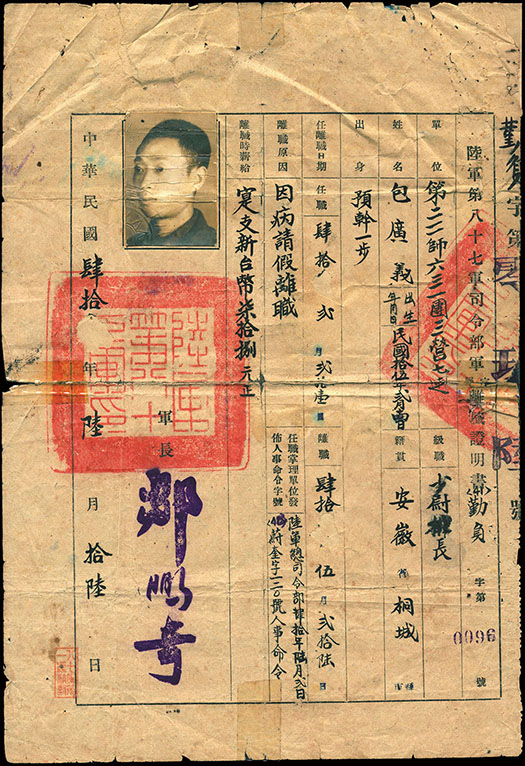 陸軍第八十七軍司令部軍官離職證明書(40)勤負字第0960號
單位 第二二一師六三一團三營七連 級職 少尉排長
姓名 包廣義 出生年月日 民國拾五年 籍貫 安徽省桐城縣市
出身 預幹一步
任離職日期 任職 肆拾 年 貳 月 日 離職 肆拾 年 伍 月 貳拾陸 日
離職原因 因病請假離職 任職掌理單位發佈人事命令字號 陸軍總司令部肆拾年陸月貳日(40)蔚奎字一二〇號人事命令
離職時薪給 實支新台幣柒拾捌元正
軍長 鄭鵬奇
中華民國肆拾年陸月拾陸日